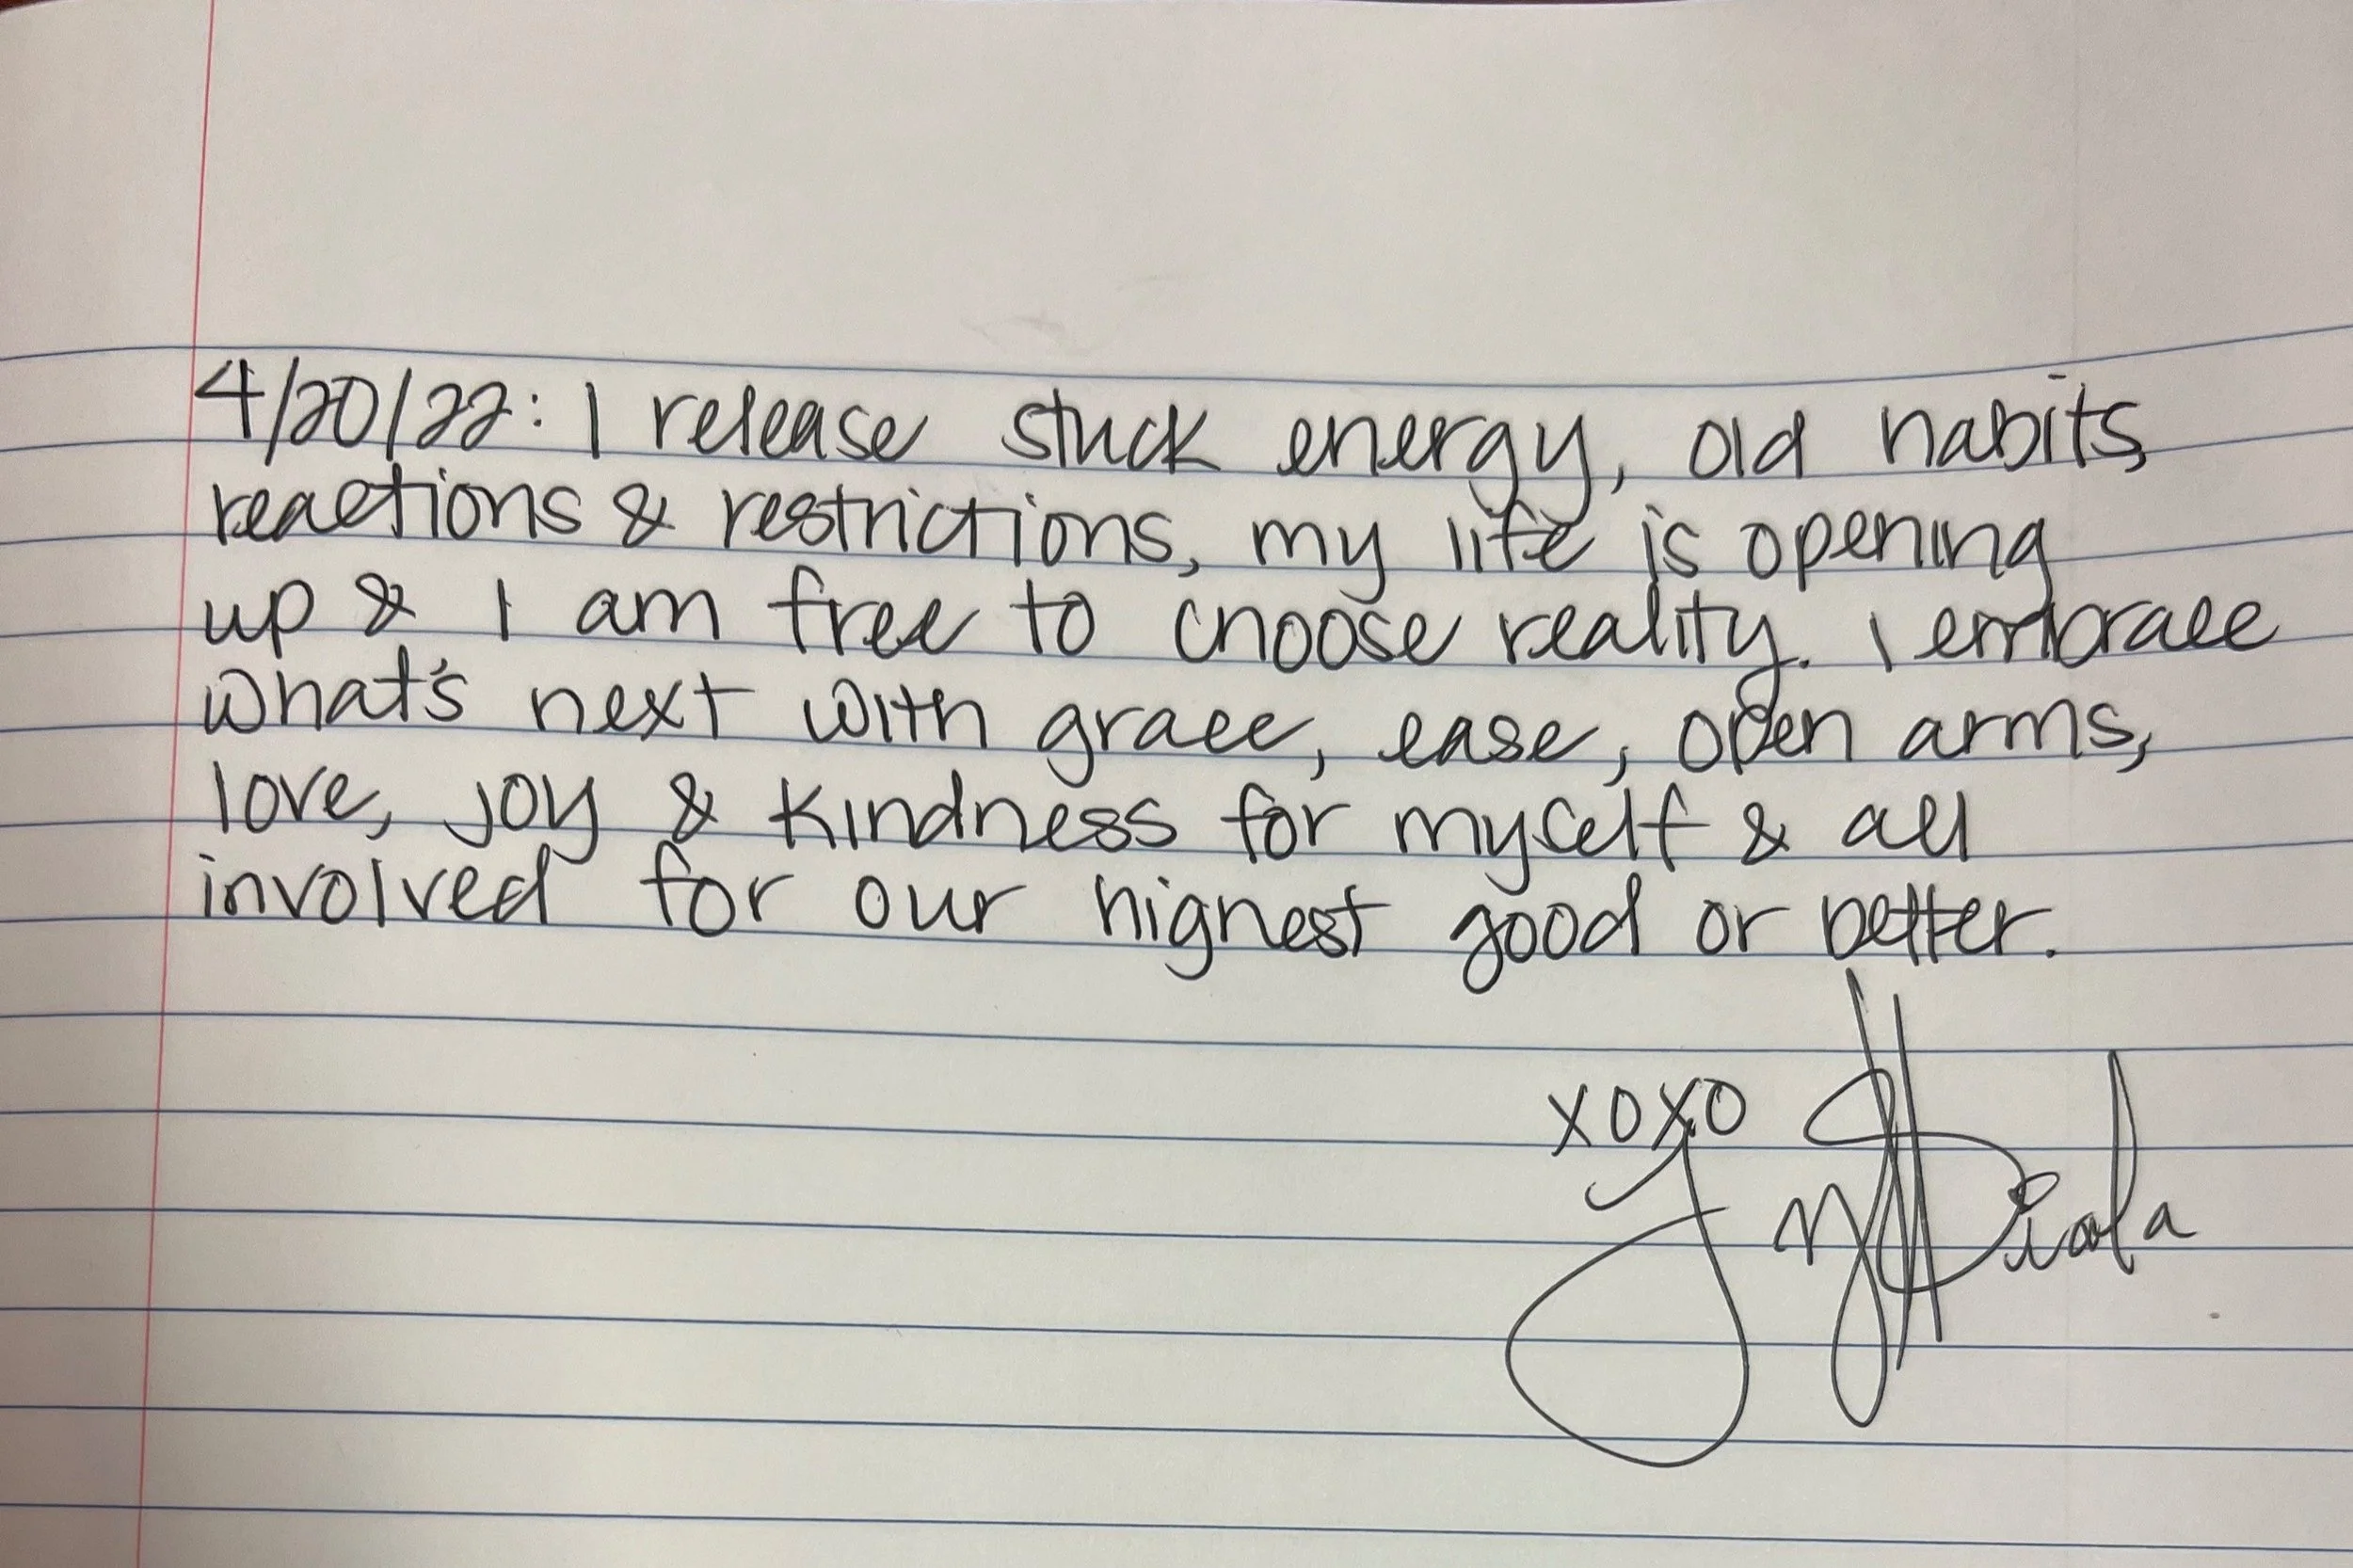 4/20/22: I release stuck energy, old habits,
reactions & restrictions, my life is opening
up & I am free to choose reality. I embrace
what's next with grace, ease, open arms,
love, joy & kindness for myself & all
involved for our highest good or better.
xoxo